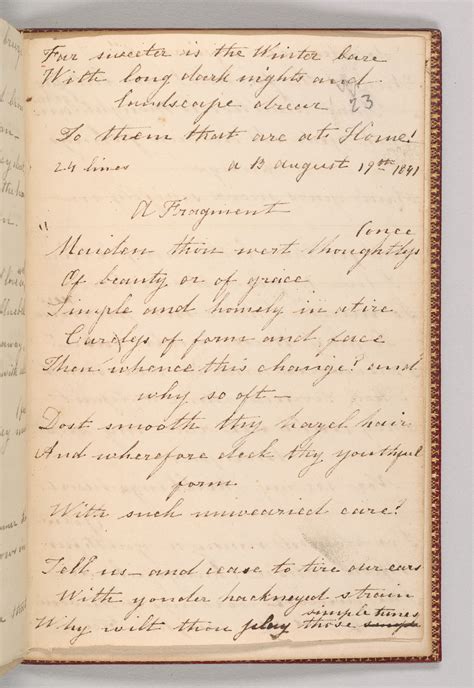 Far sweeter is the Winter bare
With long dark nights and
landscape drear
23
To them that are at Home!
24 lines a B august 19th 1841
A Fragment
"Maiden thou wert thoughtless once
Of beauty or of grace
Simple and homely in atire
Careless of form and face
Then whence this change? and
why so oft –
Dost smooth thy hazel hair
And wherefore deck thy youthful
form
With such unwearied care?
Tell us – and cease to tire our ears
With yonder hackneyed strain
Why wilt thou play those simple tunes